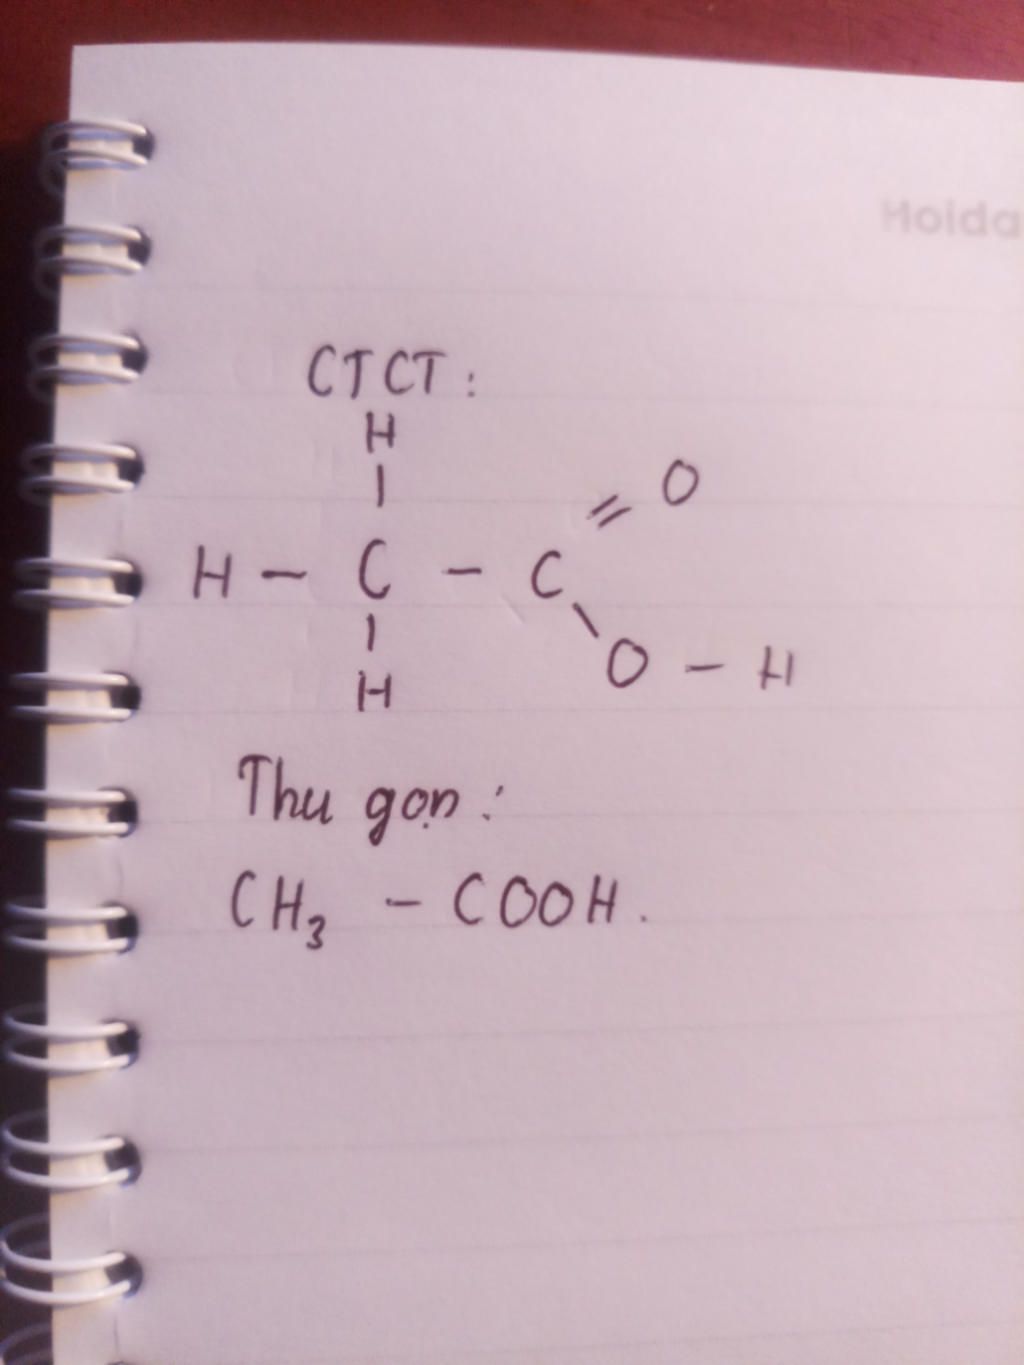 Hoida
CTCT:
H
H - C - C = O
H
O - H
Thu gọn:
CH₃ - COOH.